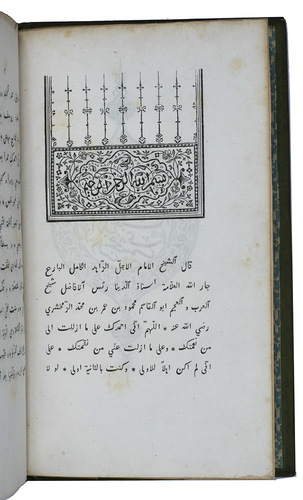 بسم الله الرحمن الرحيم
قال الشيخ الامام الاجل الزاهد الكامل البارع
جار الله العلامة استاذ الدنيا رئيس الافاضل شيخ
العرب و العجم ابو القاسم محمود بن عمر بن محمد الزمخشرى
رضى الله عنه * اللهم انى احمدك على ما ازللت الى
من نعمتك * وعلى ما ازلت عنى من نقمتك * على
انى لم اكن اهلا للاولى * وكنت بالثانية اولى * لو لا